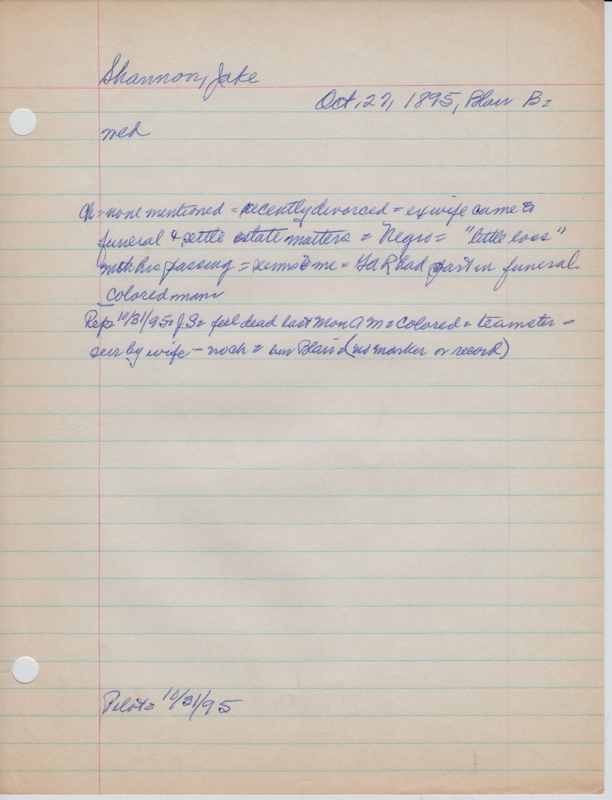 Shannon, Jake
Oct, 27, 1895, Blair B=
wed
Ch = none mentioned = recently divorced = exwife came to
funeral & settle estate matters = Negro = "little loss"
with his passing = seems to me = Gd R had part in funeral
colored man
Rep = 10/31/95 = J.S = fell dead last Mon A M = colored = teamster -
sur by wife - no ch = bur Blair = (no marker or record)
Pilot = 10/31/95